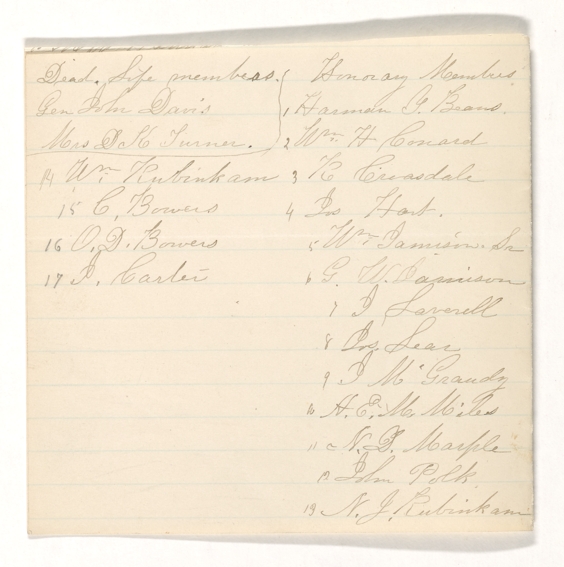 Dead, Life members.
Gen John Davis
Mrs D K Turner.
14 Wm Rubinkam
15 C. Bowers
16 O. D. Bowers
17 J. Carter
Honorary Members
1 Harman G. Beans.
2 Wm H Conard
3 K Croasdale
4 Jos Hart.
5 Wm Jamison. Sr
6 G. W. Jamison
7 J Laverell
8 Jos. Lear
9 J McGrandy
10 H. E. Miles
11 N. B. Marple
12 John Polk.
13 N. J. Rubinkam